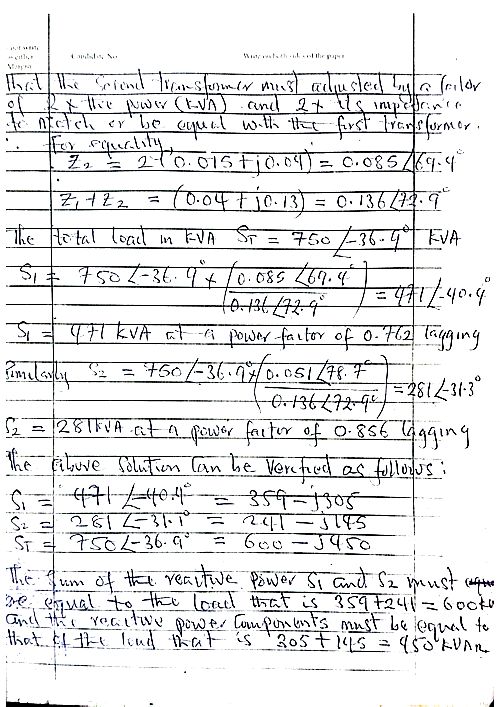 Candidate No
Write on both sides of the paper
that the second transformer must adjusted by a factor
of 2 x the power (KVA) and 2 x its impedance
to match or be equal with the first transformer.
∴ for equality,
Z₂ = 2(0.015 + j0.04) = 0.085∠69.4°
Z₁ + Z₂ = (0.04 + j0.13) = 0.136∠72.9°
The total load in KVA S_T = 750∠-36.9° KVA
S₁ = 750∠-36.9° x (0.085∠69.4° / 0.136∠72.9°) = 471∠-40.4°
S₁ = 471 KVA at a power factor of 0.762 lagging
Similarly S₂ = 750∠-36.9 x (0.051∠78.7° / 0.136∠72.9°) = 281∠-31.3°
S₂ = 281KVA at a power factor of 0.856 lagging
The above solution can be verified as follows:
S₁ = 471∠-40.4° = 359 - j305
S₂ = 281∠-31.1° = 241 - j145
S_T = 750∠-36.9° = 600 - j450
The sum of the reactive power S₁ and S₂ must
be equal to the load that is 359+241 = 600
and the reactive power components must be equal to
that of the load that is 305 + 145 = 450 KVAR